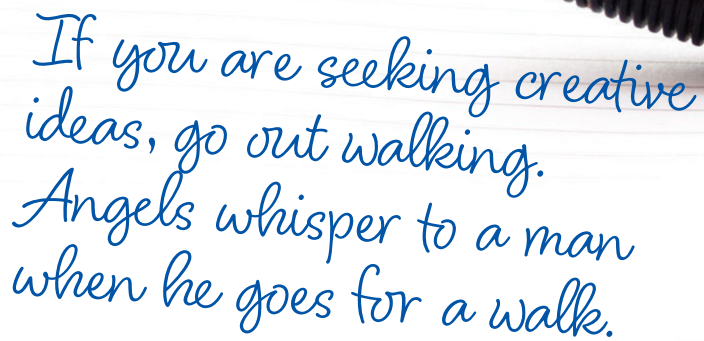 If you are seeking creative
ideas, go out walking.
Angels whisper to a man
when he goes for a walk.